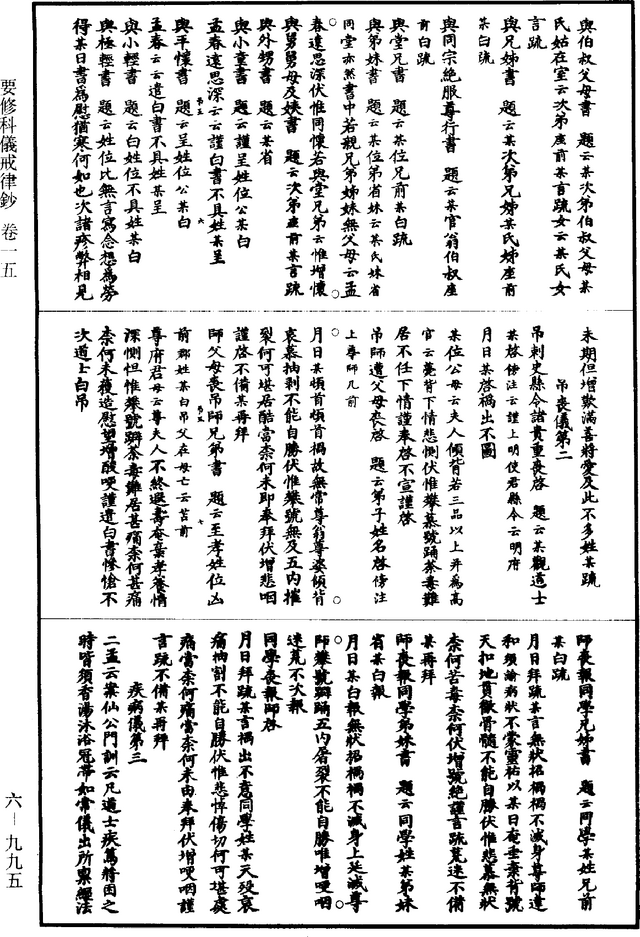 與伯叔父母書　題云某次第伯叔父母某
氏姑在室云次第座前某言疏女云某氏女
言疏
與兄姊書　題云某次第兄姊某氏姊座前
某白疏
與同宗絕服尊行書　題云某官翁伯叔座
前白疏
與堂兄書　題云某位兄前某白疏
與弟妹書　題云某位第省妹云某氏妹省
同堂亦然書中若親兄弟姊妹無父母云孟
春遠思深伏惟同懷若與堂兄弟云惟增懷
與舅舅母及姨書　題云次第座前某言疏
與外甥書　題云某省
與小童書　題云謹呈姓位公某白
孟春遠思深云云謹白書不具姓某呈
與平懷書　題云呈姓位公某白
孟春云云遣白書不具姓某呈
與小輕書　題云白姓位不具姓某白
與極輕書　題云姓位比無言寫念想爲勞
得某日書爲慰猶寒何如也次諸疹弊相見
未期但增歎滿善將愛及此不多姓某疏
吊喪儀第二
吊刺史縣令諸貴重喪啓　題云某觀道士
某啓傍注云謹上明使君縣令云明府
月日某啓禍出不圖
某位公母云夫人傾背若三品以上并爲高
官云薨背下情悲惻伏惟攀慕號踊荼毒難
居不任下情謹奉啓不宣謹啓
吊師遭父母喪啓　題云弟子姓名啓傍注
上尊師几前
月日某頓首頓首禍故無常尊翁尊婆傾背
哀慕抽剥不能自勝伏惟攀號無及五内摧
裂何可堪居酷當柰何未即奉拜伏增悲咽
謹啓不備某再拜
師父母喪吊師兄弟書　題云至孝姓位凶
前郡姓某白吊父在母亡云苫前
尊府君母云尊夫人不終遐壽奄棄孝養情
深惻怛惟攀號擗荼毒難居甚痛柰何甚痛
柰何未獲造慰望增酸哽謹遣白書慘愴不
次道士白吊
師喪報同學兄姊書　題云同學某姓兄前
某白疏
月日拜疏某言無狀招禍禍不滅身尊師違
和須諭病狀不蒙靈祐以某日奄垂棄背號
天扣地貫徹骨髓不能自勝伏惟悲慕無狀
柰何苦毒柰何伏增號絕謹言疏荒迷不備
某再拜
師喪報同學弟妹書　題云同學姓某弟妹
省某白報
月日某白報無狀招禍禍不滅身上延滅尊
師攀號擗踊五内屠裂不能自勝唯增哽咽
迷荒不次報
同學喪報師啓
月日拜疏某言禍出不意同學姓某夭殁哀
痛抽割不能自勝伏惟悲悼傷切何可堪處
痛當柰何痛當柰何未由奉拜伏增哽咽謹
言疏不備某再拜
疾病儀第三
二孟云案仙公門訓云凡道士疾篤將困之
時皆須香湯沐浴冠帶如常儀出所禀經法
要修科儀戒律鈔　卷一五
六－九九五